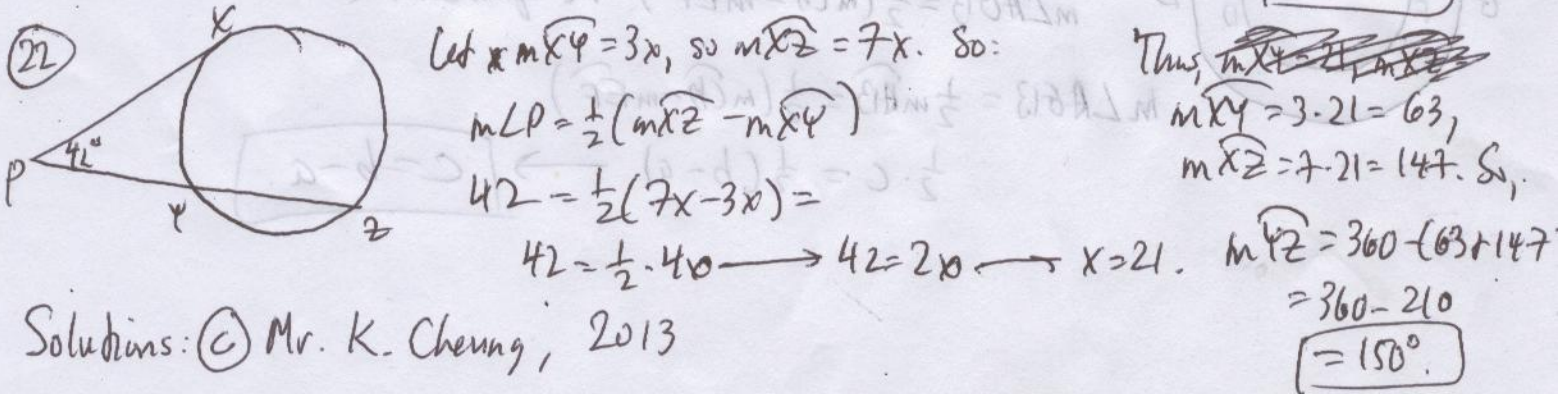 22
X
P
42°
Y
Z
Let mXY = 3x, so mXZ = 7x. So:
m∠P = 1/2(mXZ - mXY)
42 = 1/2(7x-3x) =
42 = 1/2 · 4x → 42 = 2x → x = 21.
Thus,
mXY = 3·21 = 63,
mXZ = 7·21 = 147. So,
mYZ = 360-(63+147
= 360-210
= 150°.
Solutions: © Mr. K. Cheung, 2013